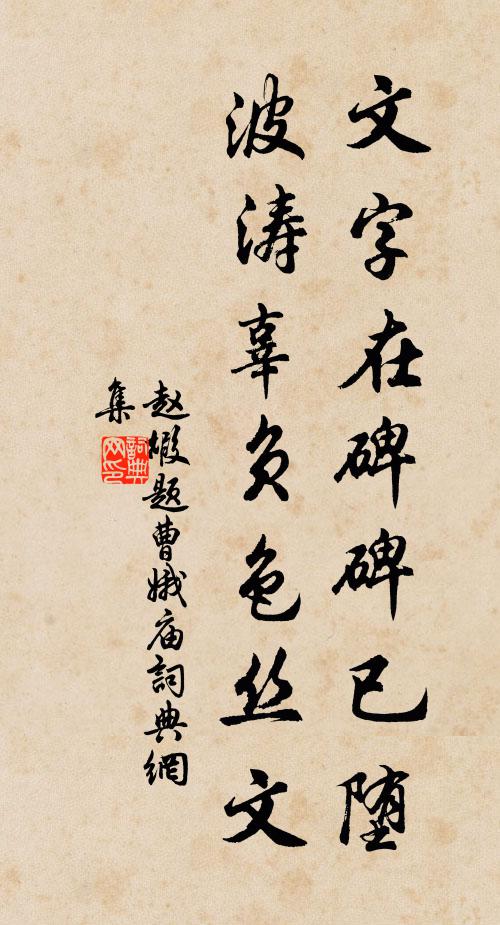 文字在碑碑已堕
波涛辜负色丝文
赵嘏题曹娥庙詞典網
集
詞典网印